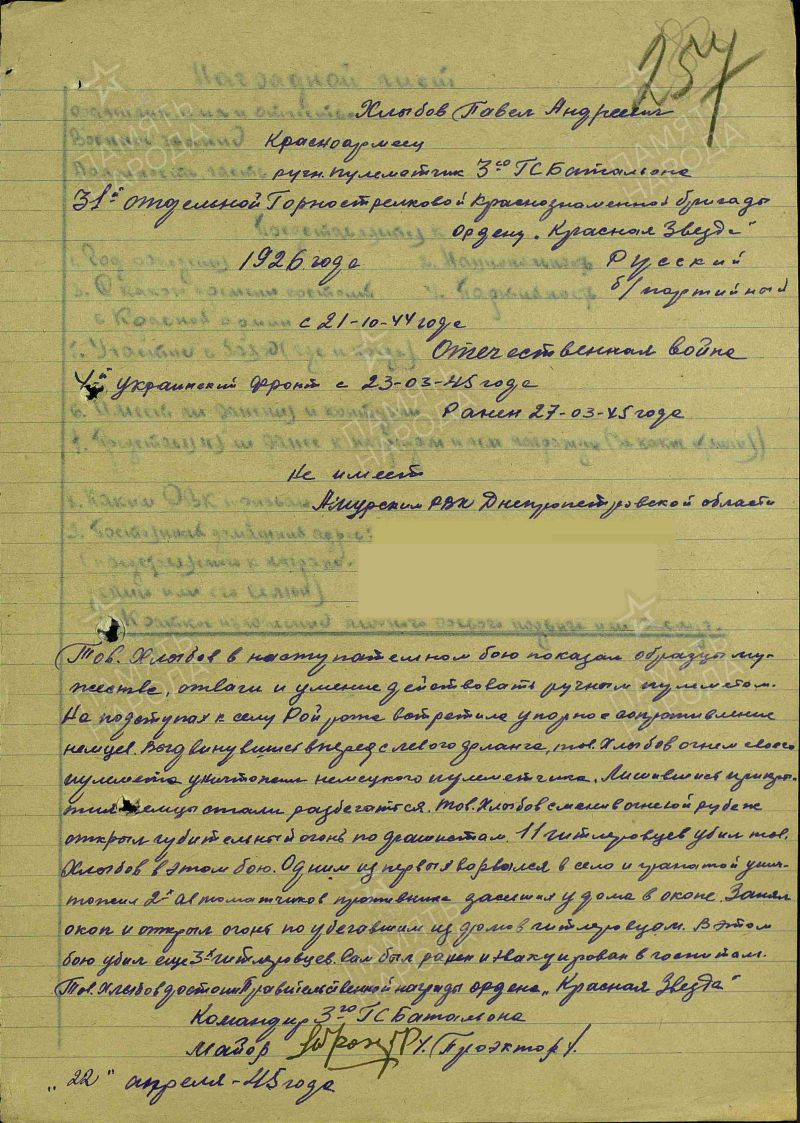 257
Наградной лист
фамилия имя и отчество Хлыбов Павел Андреевич
Военное звание Красноармеец
Должность часть ручн. пулеметчик 3го ГС Батальона
31й отдельной Горнострелковой Краснознаменной бригады
Представляется к ордену „Красная Звезда"
1. Год рождения 1926 года 2. Национальность Русский
3. С какого времени состоит 4. Партийность б/партийный
в Красной армии с 21-10-44 года
5. Участие в Отечественная война
4й Украинский фронт с 23-03-45 года
6. Имеет ли ранения и контузии Ранен 27-03-45 года
7. Представлялся ли ранее к наградам и чем награжден (за какие отличия)
Не имеет
8. Каким РВК призван Амурским РВК Днепропетровской области
9. Постоянный домашний адрес:
(представляемого к награжд-
ению или его семьи)
Краткое изложение личного боевого подвига или заслуг.
Тов. Хлыбов в наступательном бою показал образцы му-
жества, отваги и умение действовать ручным пулеметом.
На подступах к селу Рой рота встретила упорное сопротивление
немцев. Выдвинувшись вперед с левого фланга, тов. Хлыбов огнем своего
пулемета уничтожил немецкого пулеметчика. Лишившись прикры-
тия немцы стали разбегаться. Тов. Хлыбов сменив огневой рубеж
открыл губительный огонь по фашистам. 11 гитлеровцев убил тов.
Хлыбов в этом бою. Одним из первых ворвался в село и гранатой унич-
тожил 2х автоматчиков противника засевших у дома в окопе. Занял
окоп и открыл огонь по убегавшим из домов гитлеровцам. В этом
бою убил еще 3х гитлеровцев. Сам был ранен и эвакуирован в госпиталь.
Тов. Хлыбов достоин Правительственной награды ордена „Красная Звезда"
Командир 3го ГС Батальона
Майор (Проэктор).
„22" апреля - 45 года
ПАМЯТЬ НАРОДА